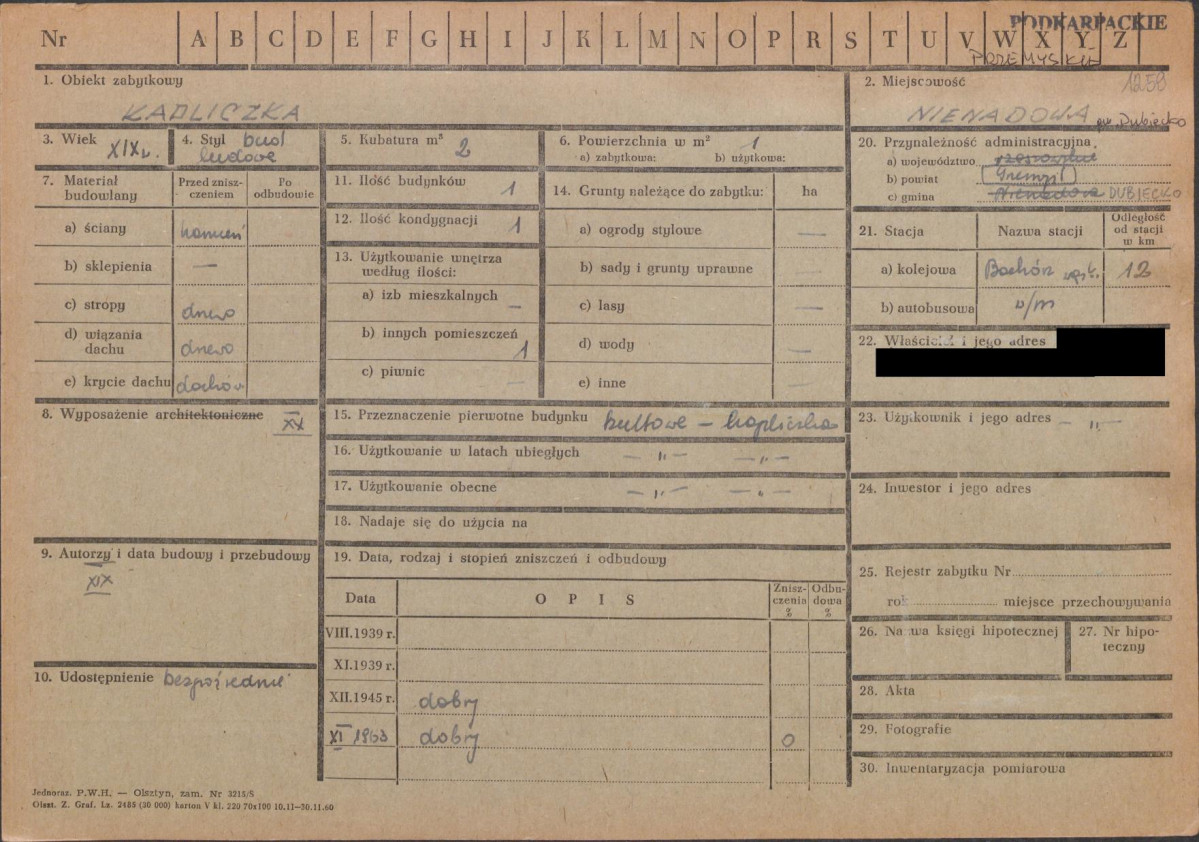 PODKARPACKIE
Nr A B C D E F G H I J K L M N O P R S T U V W X Y Z
PRZEMYSKIE
1. Obiekt zabytkowy
KAPLICZKA
2. Miejscowość 1259
NIENADOWA gm. Dubiecko
3. Wiek XIX w.
4. Styl bud ludowe
5. Kubatura m³ 2
6. Powierzchnia w m² 1
a) zabytkowa: b) użytkowa:
7. Materiał budowlany
Przed zniszczeniem
Po odbudowie
a) ściany kamień
b) sklepienia —
c) stropy drewo
d) wiązania dachu drewo
e) krycie dachu dachów
11. Ilość budynków 1
12. Ilość kondygnacji 1
13. Użytkowanie wnętrza według ilości:
a) izb mieszkalnych —
b) innych pomieszczeń 1
c) piwnic —
14. Grunty należące do zabytku: ha
a) ogrody stylowe —
b) sady i grunty uprawne —
c) lasy —
d) wody —
e) inne —
20. Przynależność administracyjna
a) województwo rzeszowskie
b) powiat Przemyśl
c) gmina Nienadowa DUBIECKO
21. Stacja Nazwa stacji Odległość od stacji w km
a) kolejowa Bachórz 12
b) autobusowa w/m
22. Właściciel i jego adres
8. Wyposażenie architektoniczne XX
15. Przeznaczenie pierwotne budynku kultowe – kapliczka
16. Użytkowanie w latach ubiegłych — „ — — „ —
17. Użytkowanie obecne — „ — — „ —
18. Nadaje się do użycia na
23. Użytkownik i jego adres — „ —
24. Inwestor i jego adres
9. Autorzy i data budowy i przebudowy
XIX
19. Data, rodzaj i stopień zniszczeń i odbudowy
Data OPIS Zniszczenia % Odbudowa %
VIII.1939 r.
XI.1939 r.
XII.1945 r. dobry
XI 1963 dobry 0
10. Udostępnienie bezpośrednie
25. Rejestr zabytku Nr
rok miejsce przechowywania
26. Nazwa księgi hipotecznej
27. Nr hipoteczny
28. Akta
29. Fotografie
30. Inwentaryzacja pomiarowa
Jednoraz. P.W.H. — Olsztyn, zam. Nr 3215/S
Olszt. Z. Graf. Lz. 2485 (30 000) karton V kl. 220 70x100 10.11—30.11.60